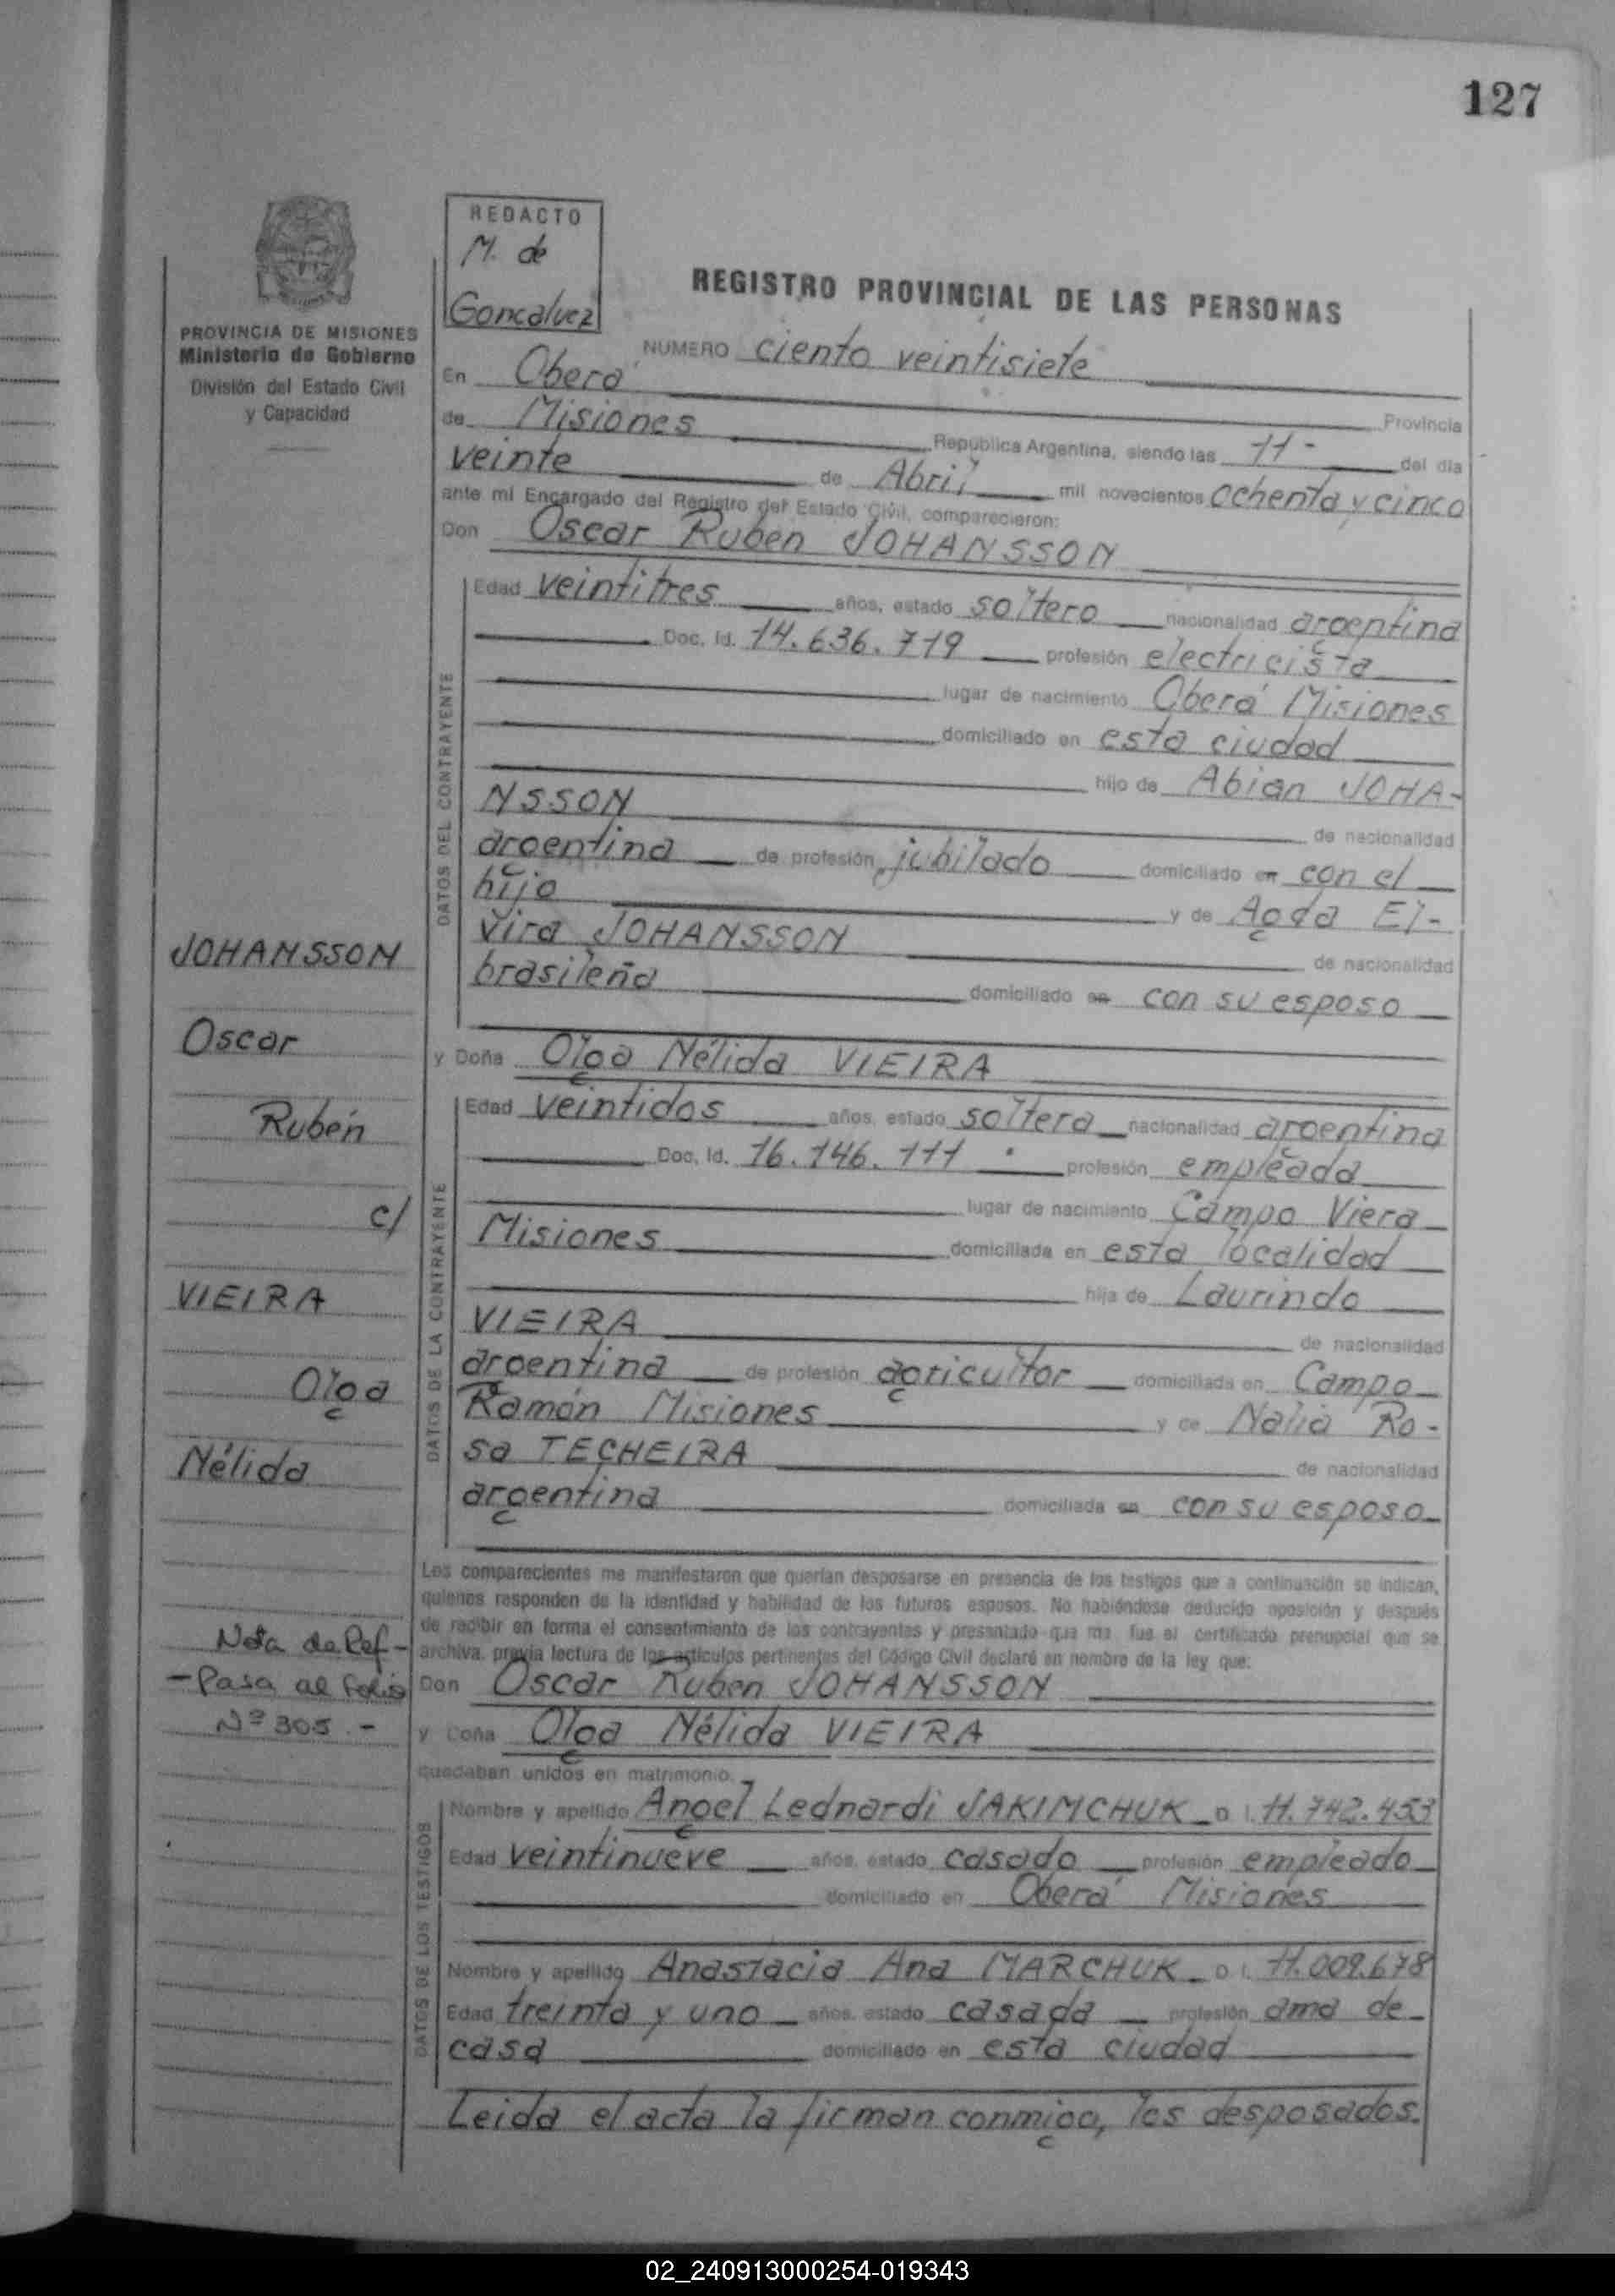 127
REDACTO
M. de
Goncalvez
PROVINCIA DE MISIONES
Ministerio de Gobierno
División del Estado Civil
y Capacidad
REGISTRO PROVINCIAL DE LAS PERSONAS
NUMERO ciento veintisiete
En Oberá
Provincia
de Misiones República Argentina, siendo las 11- del día
veinte de Abril mil novecientos ochenta y cinco
ante mi Encargado del Registro del Estado Civil, comparecieron:
Don Oscar Ruben JOHANSSON
DATOS DEL CONTRAYENTE
Edad veintitres años, estado soltero nacionalidad argentina
Doc. Id. 14.636.719 profesión electricista
lugar de nacimiento Oberá Misiones
domiciliado en esta ciudad
hijo de Abian JOHA-
NSSON de nacionalidad
argentina de profesión jubilado domiciliado en con el
hijo y de Agda El-
vira JOHANSSON de nacionalidad
brasileña domiciliado en con su esposo
y Doña Olga Nélida VIEIRA
DATOS DE LA CONTRAYENTE
Edad veintidos años, estado soltera nacionalidad argentina
Doc. Id. 16.146.111 profesión empleada
lugar de nacimiento Campo Viera
Misiones domiciliada en esta localidad
hija de Laurindo
VIEIRA de nacionalidad
argentina de profesión agricultor domiciliada en Campo
Ramón Misiones y de Nalia Ro-
sa TECHEIRA de nacionalidad
argentina domiciliada en con su esposo
Los comparecientes me manifestaron que querían desposarse en presencia de los testigos que a continuación se indican,
quienes responden de la identidad y habilidad de los futuros esposos. No habiéndose deducido oposición y después
de recibir en forma el consentimiento de los contrayentes y presentado que me fue el certificado prenupcial que se
archiva, previa lectura de los artículos pertinentes del Código Civil declaré en nombre de la ley que:
Don Oscar Ruben JOHANSSON
y Doña Olga Nélida VIEIRA
quedaban unidos en matrimonio.
DATOS DE LOS TESTIGOS
Nombre y apellido Angel Lednardi JAKIMCHUK D. I. 11.742.453
Edad veintinueve años, estado casado profesión empleado
domiciliado en Oberá Misiones
Nombre y apellido Anastacia Ana MARCHUK D. I. 11.009.678
Edad treinta y uno años, estado casada profesión ama de
casa domiciliado en esta ciudad
Leida el acta la firman conmigo, los desposados.
JOHANSSON
Oscar
Rubén
c/
VIEIRA
Olga
Nélida
Nota de Ref-
-Pasa al folio
Nº 305.-
02_240913000254-019343